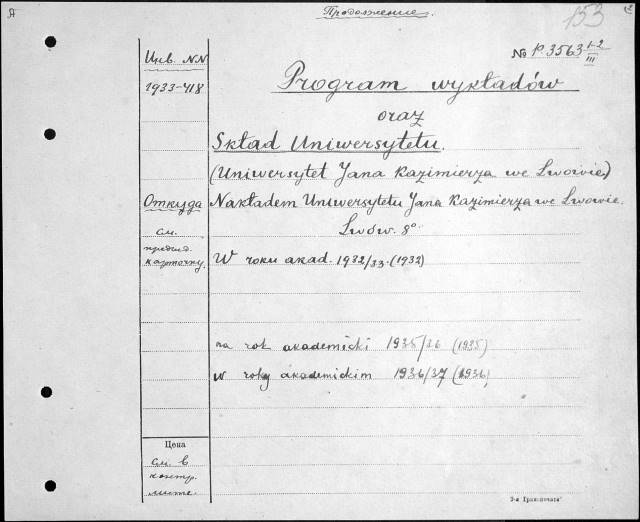 Продолжение.
153
№ P.3563 1-2/III
Инв. NN
1933-418
Program wykładów
oraz
Skład Uniwersytetu.
(Uniwersytet Jana Kazimierza we Lwowie)
Откуда
Nakładem Uniwersytetu Jana Kazimierza we Lwowie.
см.
Lwów. 8°
предыд.
карточку.
W roku akad. 1932/33. (1932)
na rok akademicki 1935/36 (1935)
w roku akademickim 1936/37 (1936)
Цена
см. в
контр.
листе.